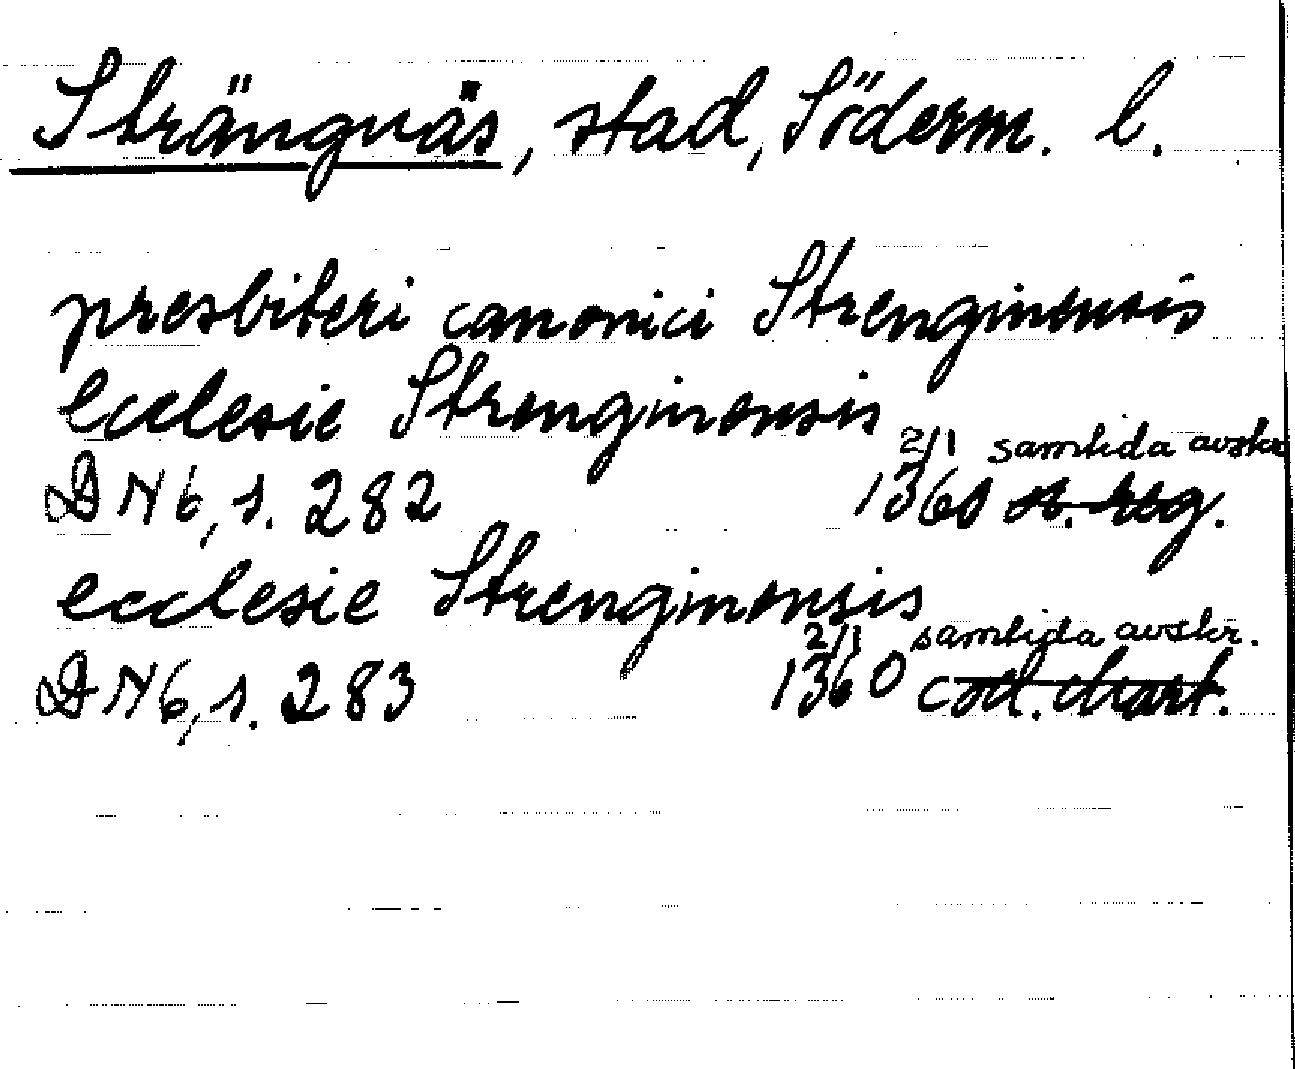 Strängnäs, stad, Söderm. l.
presbiteri canonici Strenginensis
ecclesie Strenginensis
2/1 samtida avskr
DN 6, s. 282 1360 st. reg.
ecclesie Strenginensis
2/1 samtida avskr.
DN 6, s. 283 1360 cod. chart.